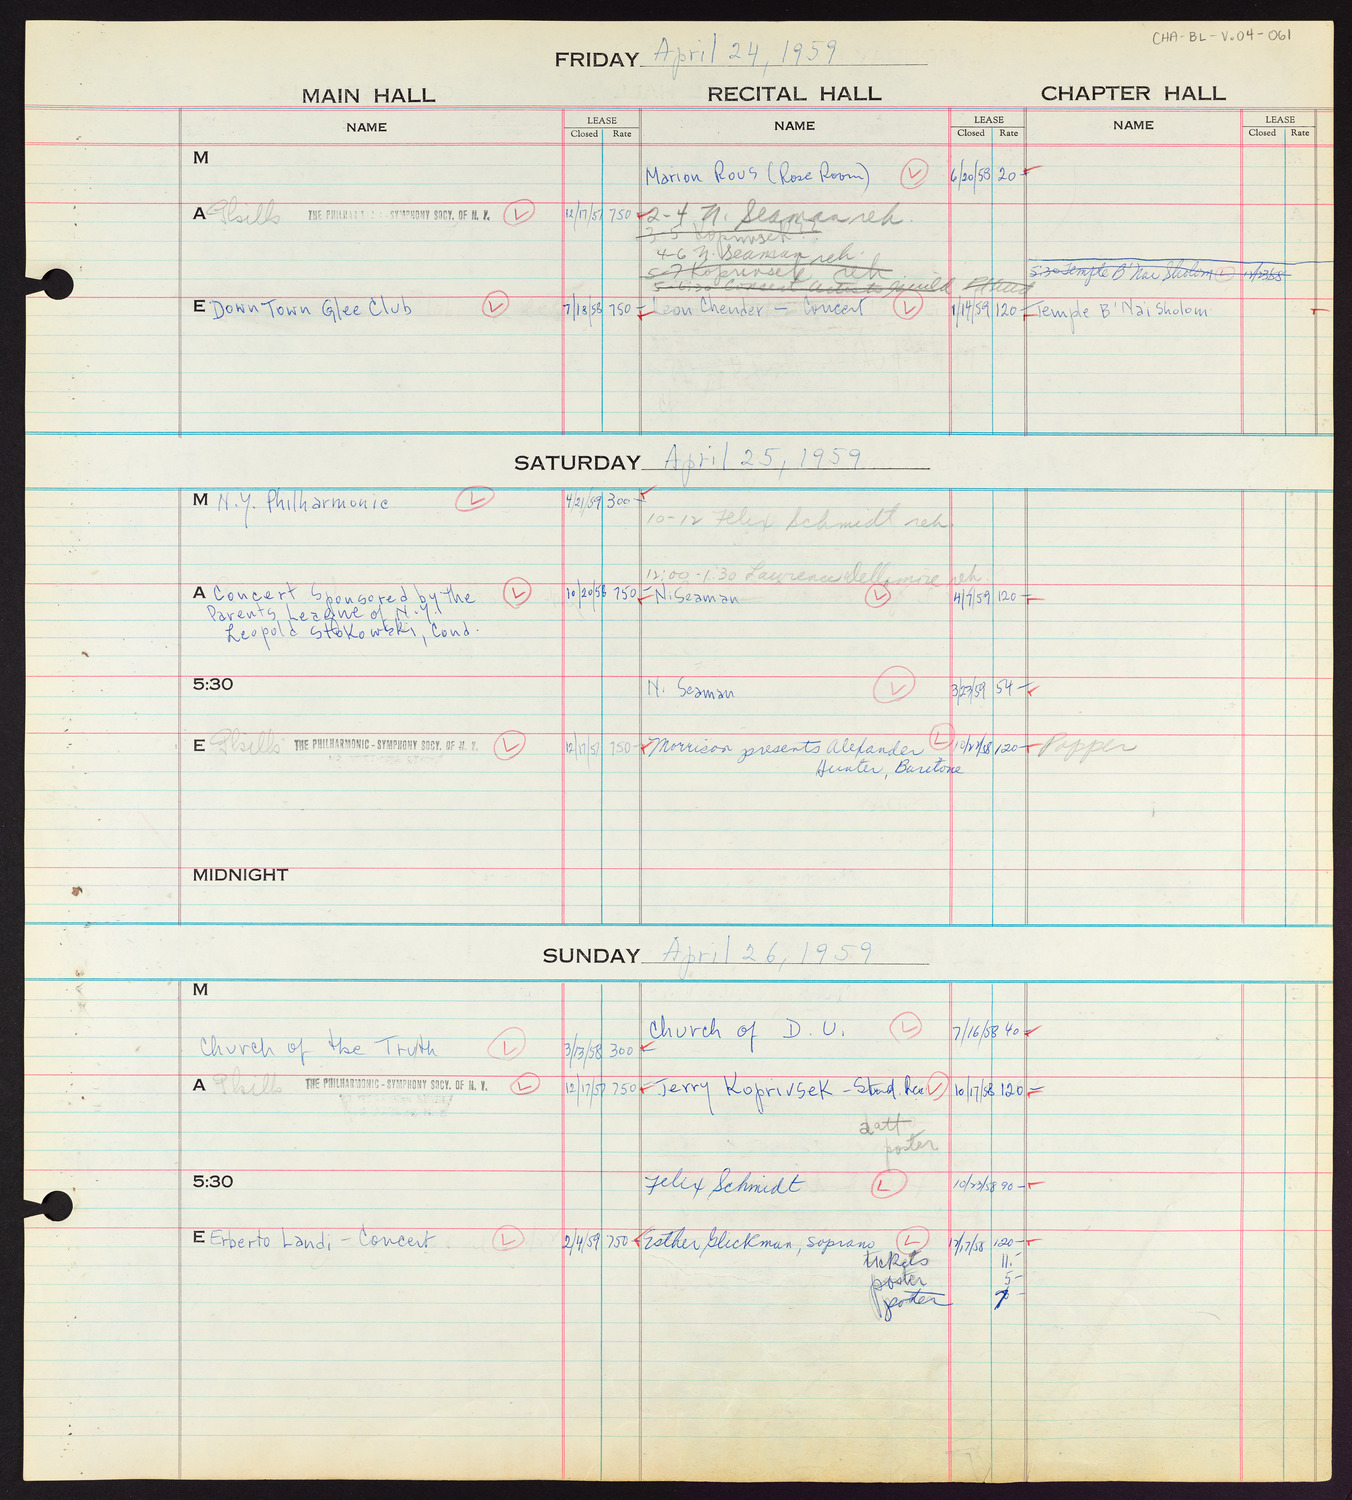 CHA-BL-V.04-061
FRIDAY April 24, 1959
MAIN HALL RECITAL HALL CHAPTER HALL
NAME LEASE Closed Rate NAME LEASE Closed Rate NAME LEASE Closed Rate
M
Marion Rous (Rose Room) L 6/20/58 20-
A THE PHILHARMONIC-SYMPHONY SOCY. OF N. Y. L 12/17/57 750- 2-4 N. Seaman reh.
3-5 Koprivsek
4-6 N. Seaman reh.
5-7 Koprivsek reh
5:30 Temple B'Nai Sholom L 12/23/58
5-6:30 Concert Artists Guild
E Down Town Glee Club L 7/18/58 750- Leon Chender - Concert L 1/14/59 120- Temple B'Nai Sholom
SATURDAY April 25, 1959
M N.Y. Philharmonic L 4/21/59 300-
10-12 Felix Schmidt reh.
12:00-1:30 Lawrence Dellamore reh.
A Concert Sponsored by the L 10/20/58 750- N. Seaman L 4/7/59 120-
Parents League of N.Y.
Leopold Stokowski, Cond.
5:30 N. Seaman L 3/23/59 54-
E THE PHILHARMONIC-SYMPHONY SOCY. OF N. Y. L 12/17/57 750- Morrison presents Alexander L 10/27/58 120- Popper
Hunter, Baritone
MIDNIGHT
SUNDAY April 26, 1959
M
Church of D. U. L 7/16/58 40-
Church of the Truth L 3/13/58 300-
A THE PHILHARMONIC-SYMPHONY SOCY. OF N. Y. L 12/17/57 750- Jerry Koprivsek - Stud. Rec L 10/17/58 120-
2 att
poster
5:30 Felix Schmidt L 10/23/58 90-
E Erberto Landi - Concert L 2/4/59 750- Esther Glickman, soprano L 12/17/58 120-
tickets 11.
poster 5-
poster 7-